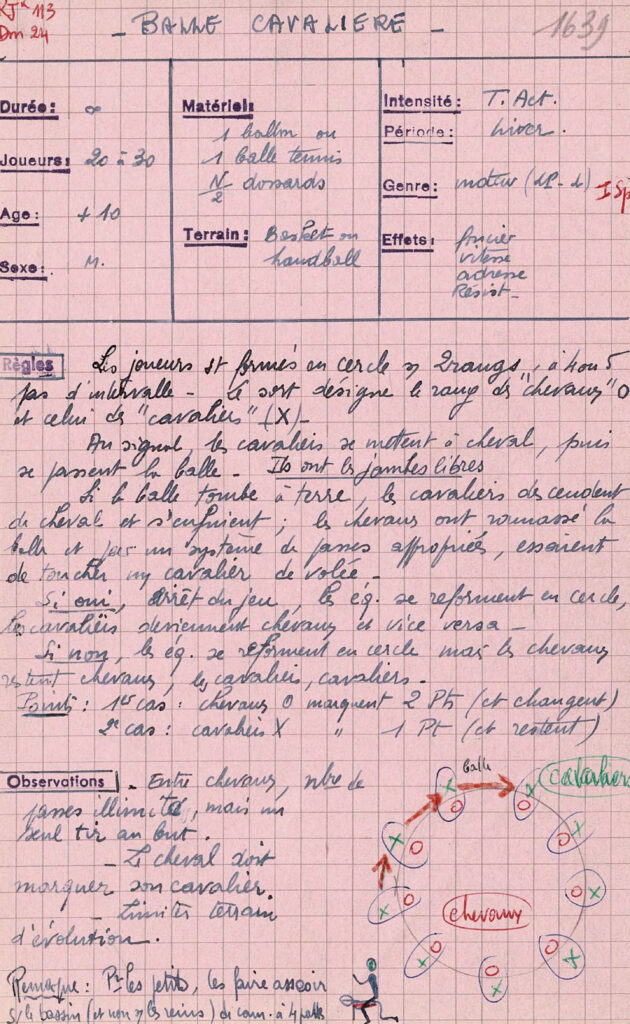 RJx 113
Dm 24
- BALLE CAVALIERE -
1639
Durée: ∞
Joueurs: 20 à 30
Age: + 10
Sexe: M.
Matériel:
1 ballon ou
1 balle tennis
N/2 dossards
Terrain: Basket ou
handball
Intensité: T. Act.
Période: hiver.
Genre: moteur (dP - d) I Sp
Effets: foncier
vitesse
adresse
Résist-
Règles Les joueurs st formés en cercle sr 2 rangs, à 4 ou 5
pas d'intervalle - Le sort désigne le rang des "chevaux" O
et celui des "cavaliers" (X) -
Au signal, les cavaliers se mettent à cheval, puis
se passent la balle - Ils ont les jambes libres
Si la balle tombe à terre, les cavaliers descendent
de cheval et s'enfuient; les chevaux ont ramassé la
balle et par un système de passes appropriés, essaient
de toucher un cavalier de volée -
Si oui, arrêt du jeu, les éq. se reforment en cercle,
les cavaliers deviennent chevaux et vice versa -
Si non, les éq. se reforment en cercle mais les chevaux
restent chevaux, les cavaliers, cavaliers.
Points: 1er cas: chevaux O marquent 2 Pts (et changent)
2e cas: cavaliers X " 1 Pt (et restent)
Observations - Entre chevaux, nbre de
passes illimité, mais un
seul tir au but.
- Le cheval doit
marquer son cavalier.
- Limites terrain
d'évolution.
Remarque: Pr les petits, les faire asseoir
s/ le bassin (et non sr les reins) du cam. à 4 pattes
balle
cavaliers
chevaux